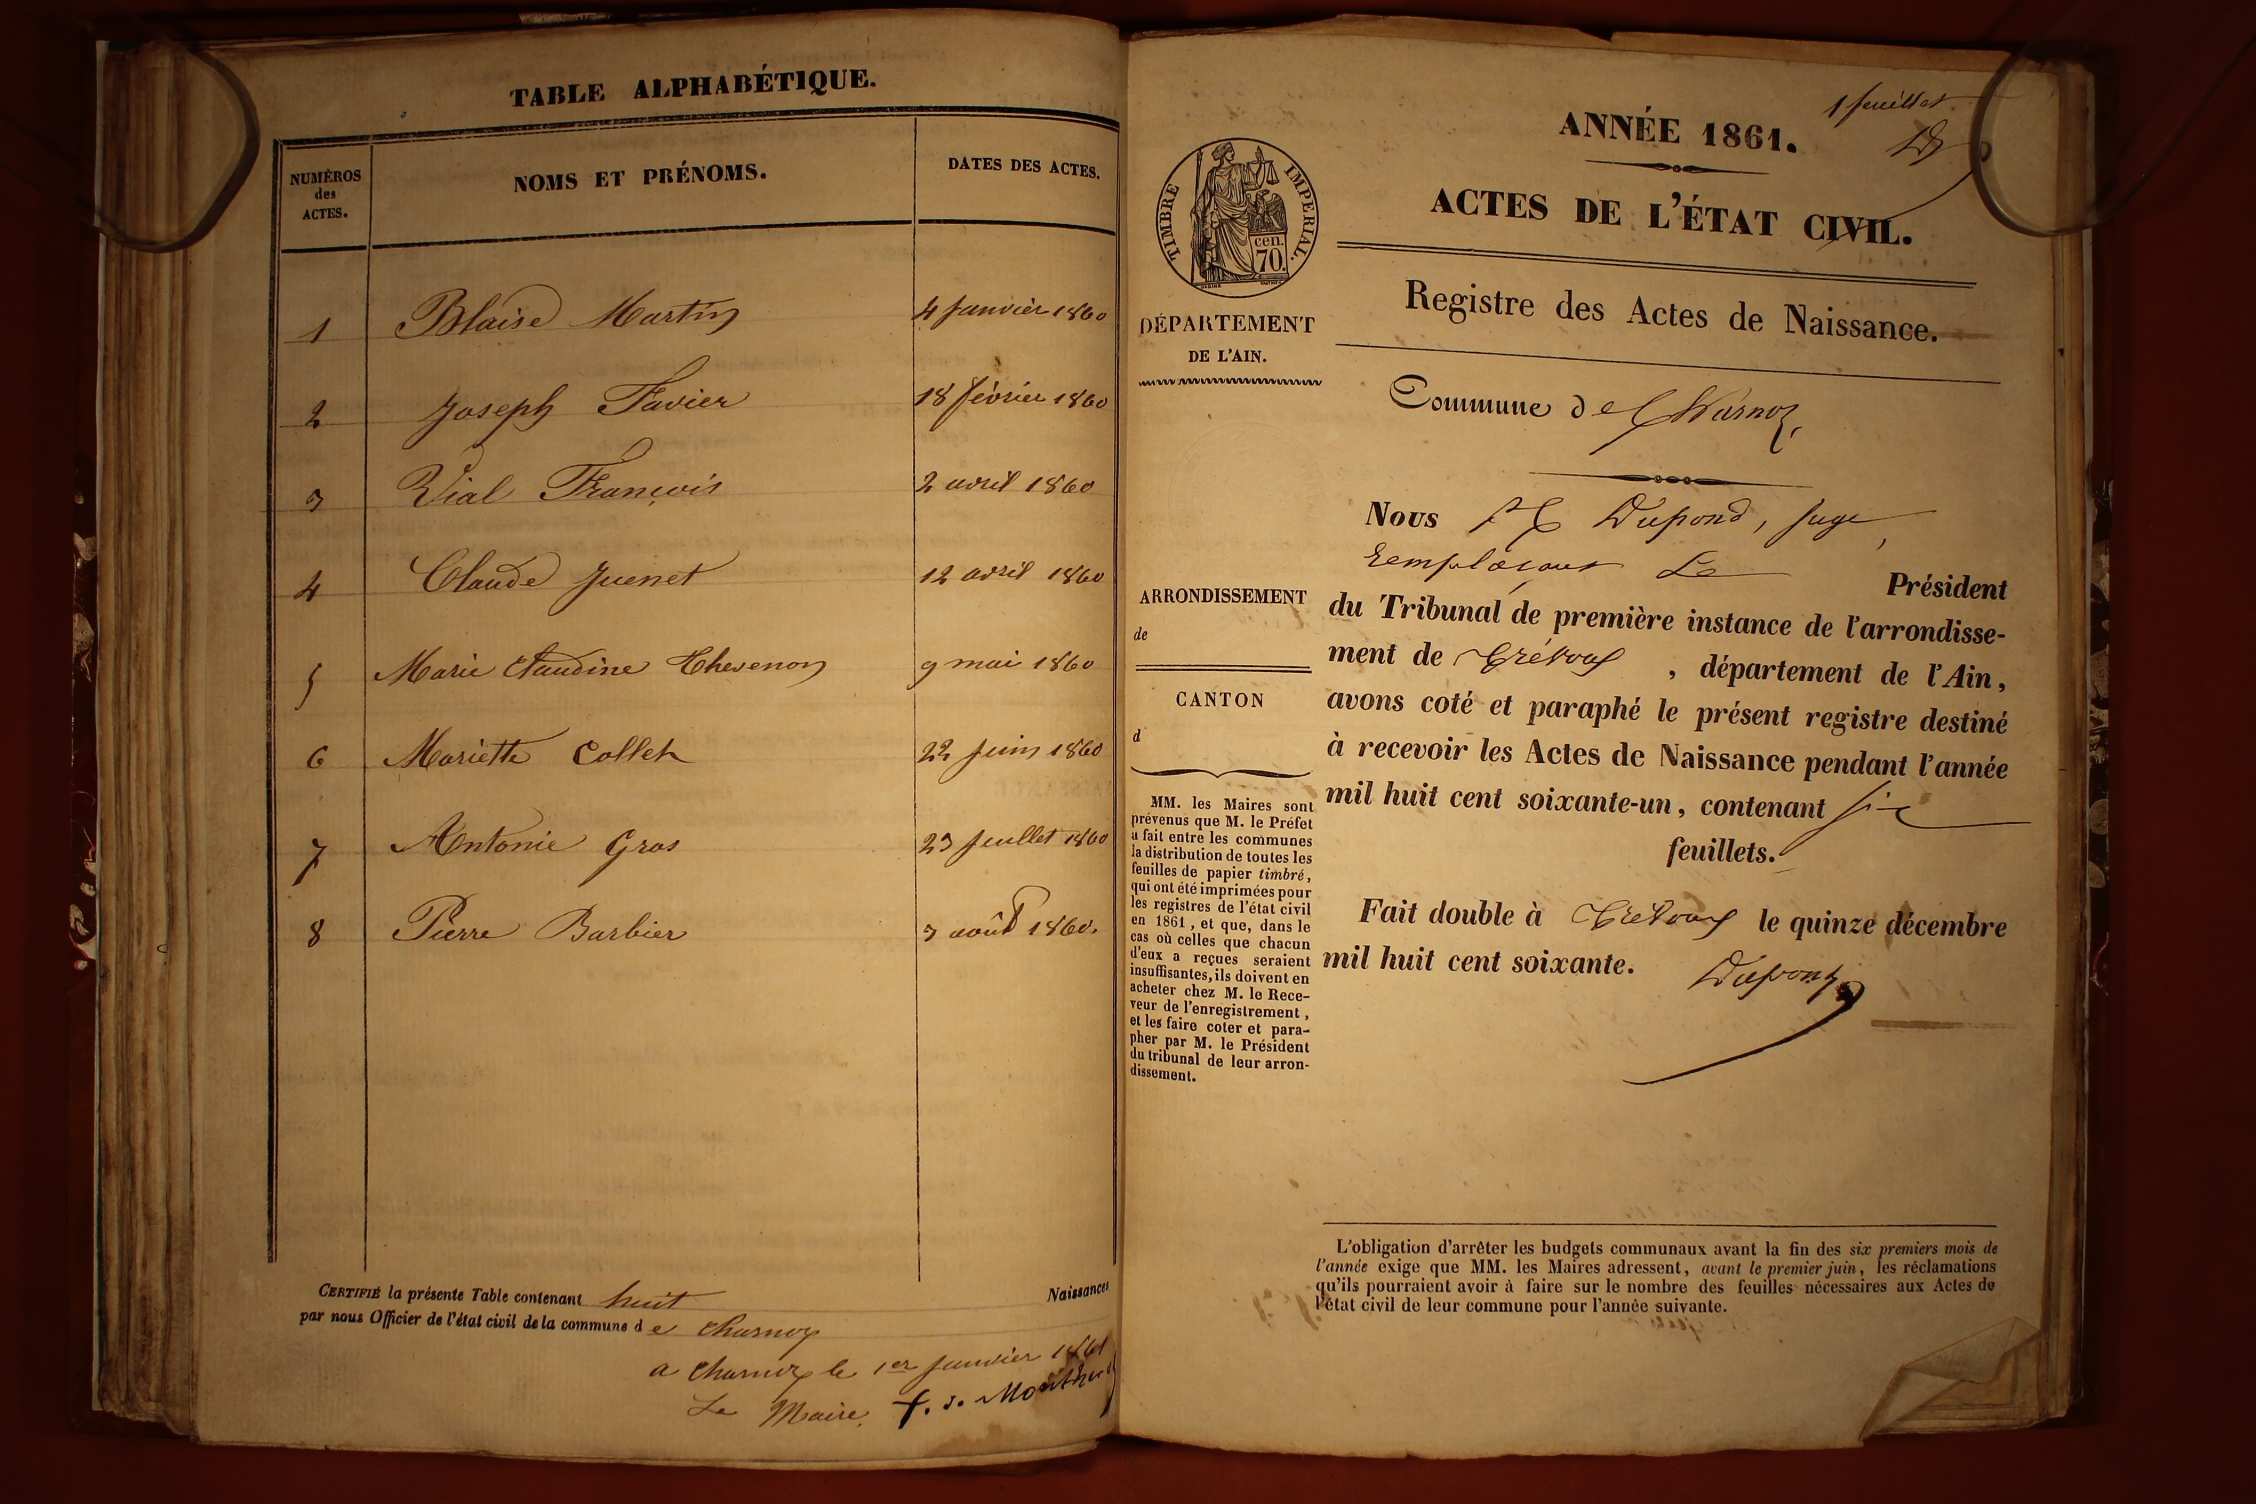 TABLE ALPHABÉTIQUE.
NUMÉROS des ACTES.
NOMS ET PRÉNOMS.
DATES DES ACTES.
1 Blaise Martin 4 Janvier 1860
2 Joseph Favier 18 février 1860
3 Vial François 2 avril 1860
4 Claude Juenet 12 avril 1860
5 Marie Claudine Thevenon 9 mai 1860
6 Mariette Collet 22 Juin 1860
7 Antonie Gros 23 Juillet 1860
8 Pierre Barbier 3 août 1860.
CERTIFIÉ la présente Table contenant huit Naissances
par nous Officier de l'état civil de la commune d e Charnoz
a Charnoz le 1er Janvier 1861
Le Maire.
1 feuillet
ANNÉE 1861.
ACTES DE L'ÉTAT CIVIL.
TIMBRE IMPERIAL.
cen.
70.
Registre des Actes de Naissance.
DÉPARTEMENT
DE L'AIN.
Commune de Charnoz,
Nous Dupond, Juge,
remplaçant Le Président
du Tribunal de première instance de l'arrondisse-
ment de Trévoux, département de l'Ain,
avons coté et paraphé le présent registre destiné
à recevoir les Actes de Naissance pendant l'année
mil huit cent soixante-un, contenant six
feuillets.
Fait double à Trévoux le quinze décembre
mil huit cent soixante.
Dupond
ARRONDISSEMENT
de
CANTON
d
MM. les Maires sont
prévenus que M. le Préfet
a fait entre les communes
la distribution de toutes les
feuilles de papier timbré,
qui ont été imprimées pour
les registres de l'état civil
en 1861, et que, dans le
cas où celles que chacun
d'eux a reçues seraient
insuffisantes, ils doivent en
acheter chez M. le Rece-
veur de l'enregistrement,
et les faire coter et para-
pher par M. le Président
du tribunal de leur arron-
dissement.
L'obligation d'arrêter les budgets communaux avant la fin des six premiers mois de
l'année exige que MM. les Maires adressent, avant le premier juin, les réclamations
qu'ils pourraient avoir à faire sur le nombre des feuilles nécessaires aux Actes de
l'état civil de leur commune pour l'année suivante.